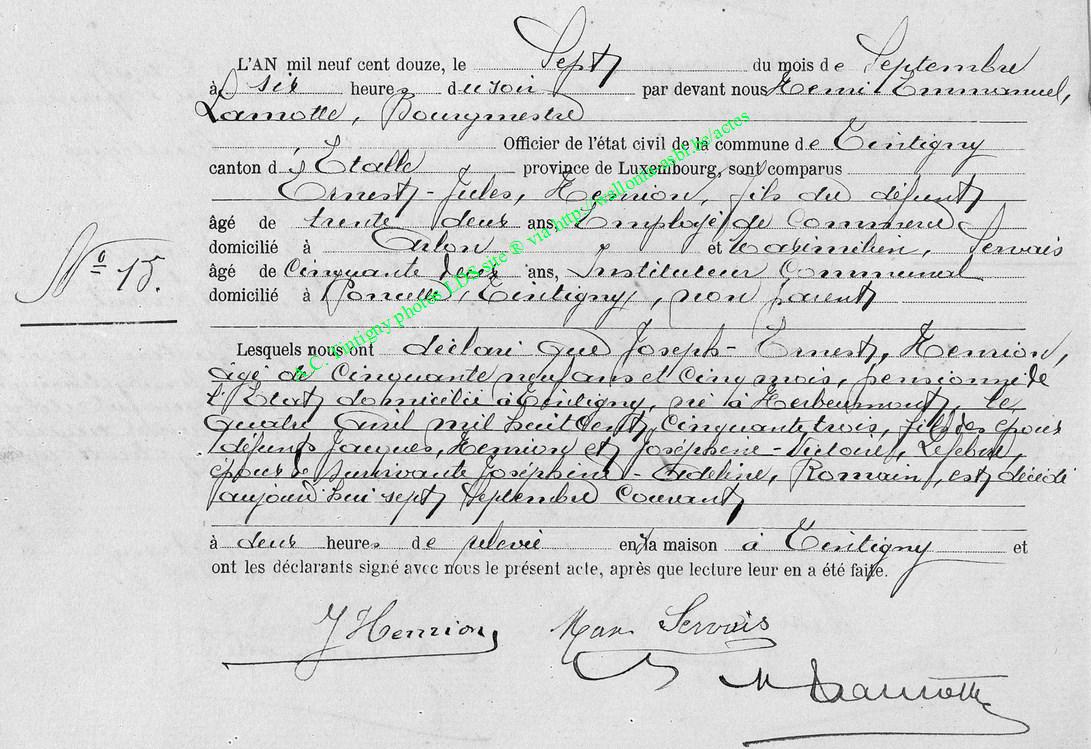 L'AN mil neuf cent douze, le Sept du mois de Septembre
à six heures du soir par devant nous Henri Emmanuel,
Lamotte, Bourgmestre
Officier de l'état civil de la commune de Tintigny
canton d'Etalle province de Luxembourg, sont comparus
Ernest-Jules, Henrion, fils du défunt
âgé de trente deux ans, Employé de Commerce
domicilié à Arlon et Maximilien, Servais
âgé de Cinquante deux ans, Instituteur Communal
domicilié à Poncelle, Tintigny, non parent
N° 15.
Lesquels nous ont déclaré que Joseph-Ernest, Henrion,
âgé de Cinquante neuf ans et Cinq mois, pensionné de
l'Etat domicilié à Tintigny, né à Herbeumont, le
quatre Avril mil huit cent Cinquante trois, fils des époux
défunts Jacques, Henrion et Joséphine-Victoire, Lefebvre,
époux de survivante Joséphine-Adeline, Romain, est décédé
aujourd'hui sept Septembre Courant
à deux heures de relevée en sa maison à Tintigny et
ont les déclarants signé avec nous le présent acte, après que lecture leur en a été faite.
J Henrion Max Servais
H Lamotte
A.C. Tintigny photos LDS-site ® via http://wallonia-asbl.be/actes